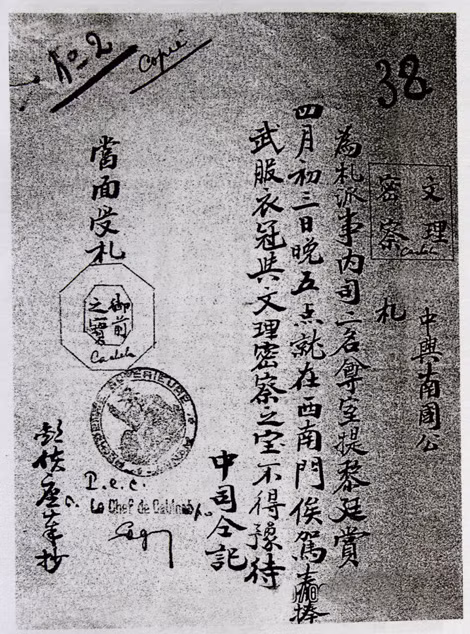 No 2
Copié
38
中興南國公
文理
密察
Cachet
札
為札派事内司二名尊室提黎廷賞
四月初三日晚五点就在西南門俟駕捧
武服衣冠與文理密察之宝不得豫待
中司仝記
當面受札
御前
之寶
Cachet
RÉSIDENCE SUPÉRIEURE
P.c.c.
Le Chef de Cabinet
奉抄